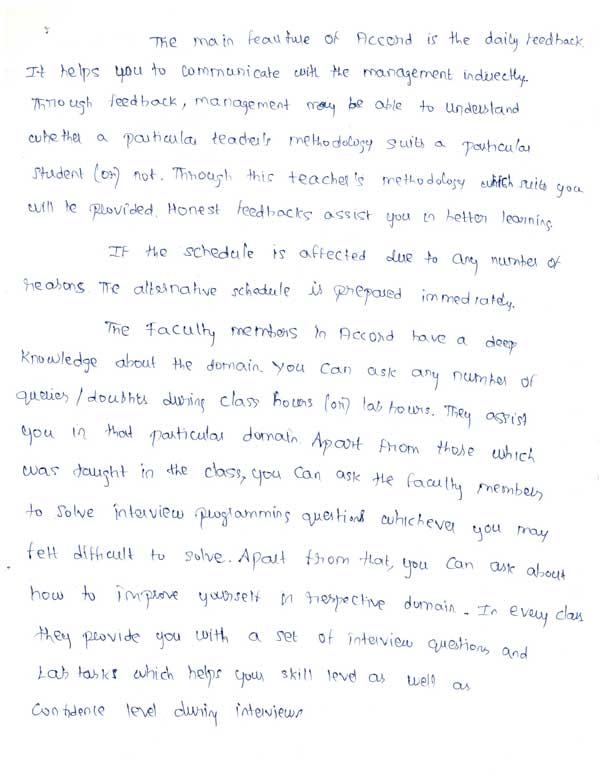 The main feauture of Accord is the daily feedback.
It helps you to communicate with the management indirectly.
Through feedback, management may be able to understand
whether a particular teacher's methodology suits a particular
student (or) not. Through this teacher's methodology which suits you
will be provided. Honest feedbacks assist you in better learning.
If the schedule is affected due to any number of
reasons The alternative schedule is prepared immediately.
The Faculty members in Accord have a deep
knowledge about the domain. You can ask any number of
queries/doubts during class hours (or) lab hours. They assist
you in that particular domain. Apart from those which
was taught in the class, you can ask the faculty members
to solve interview programming questions whichever you may
felt difficult to solve. Apart from that, you can ask about
how to improve yourself in respective domain. In every class
they provide you with a set of interview questions and
Lab tasks which helps your skill level as well as
Confidence level during interviews